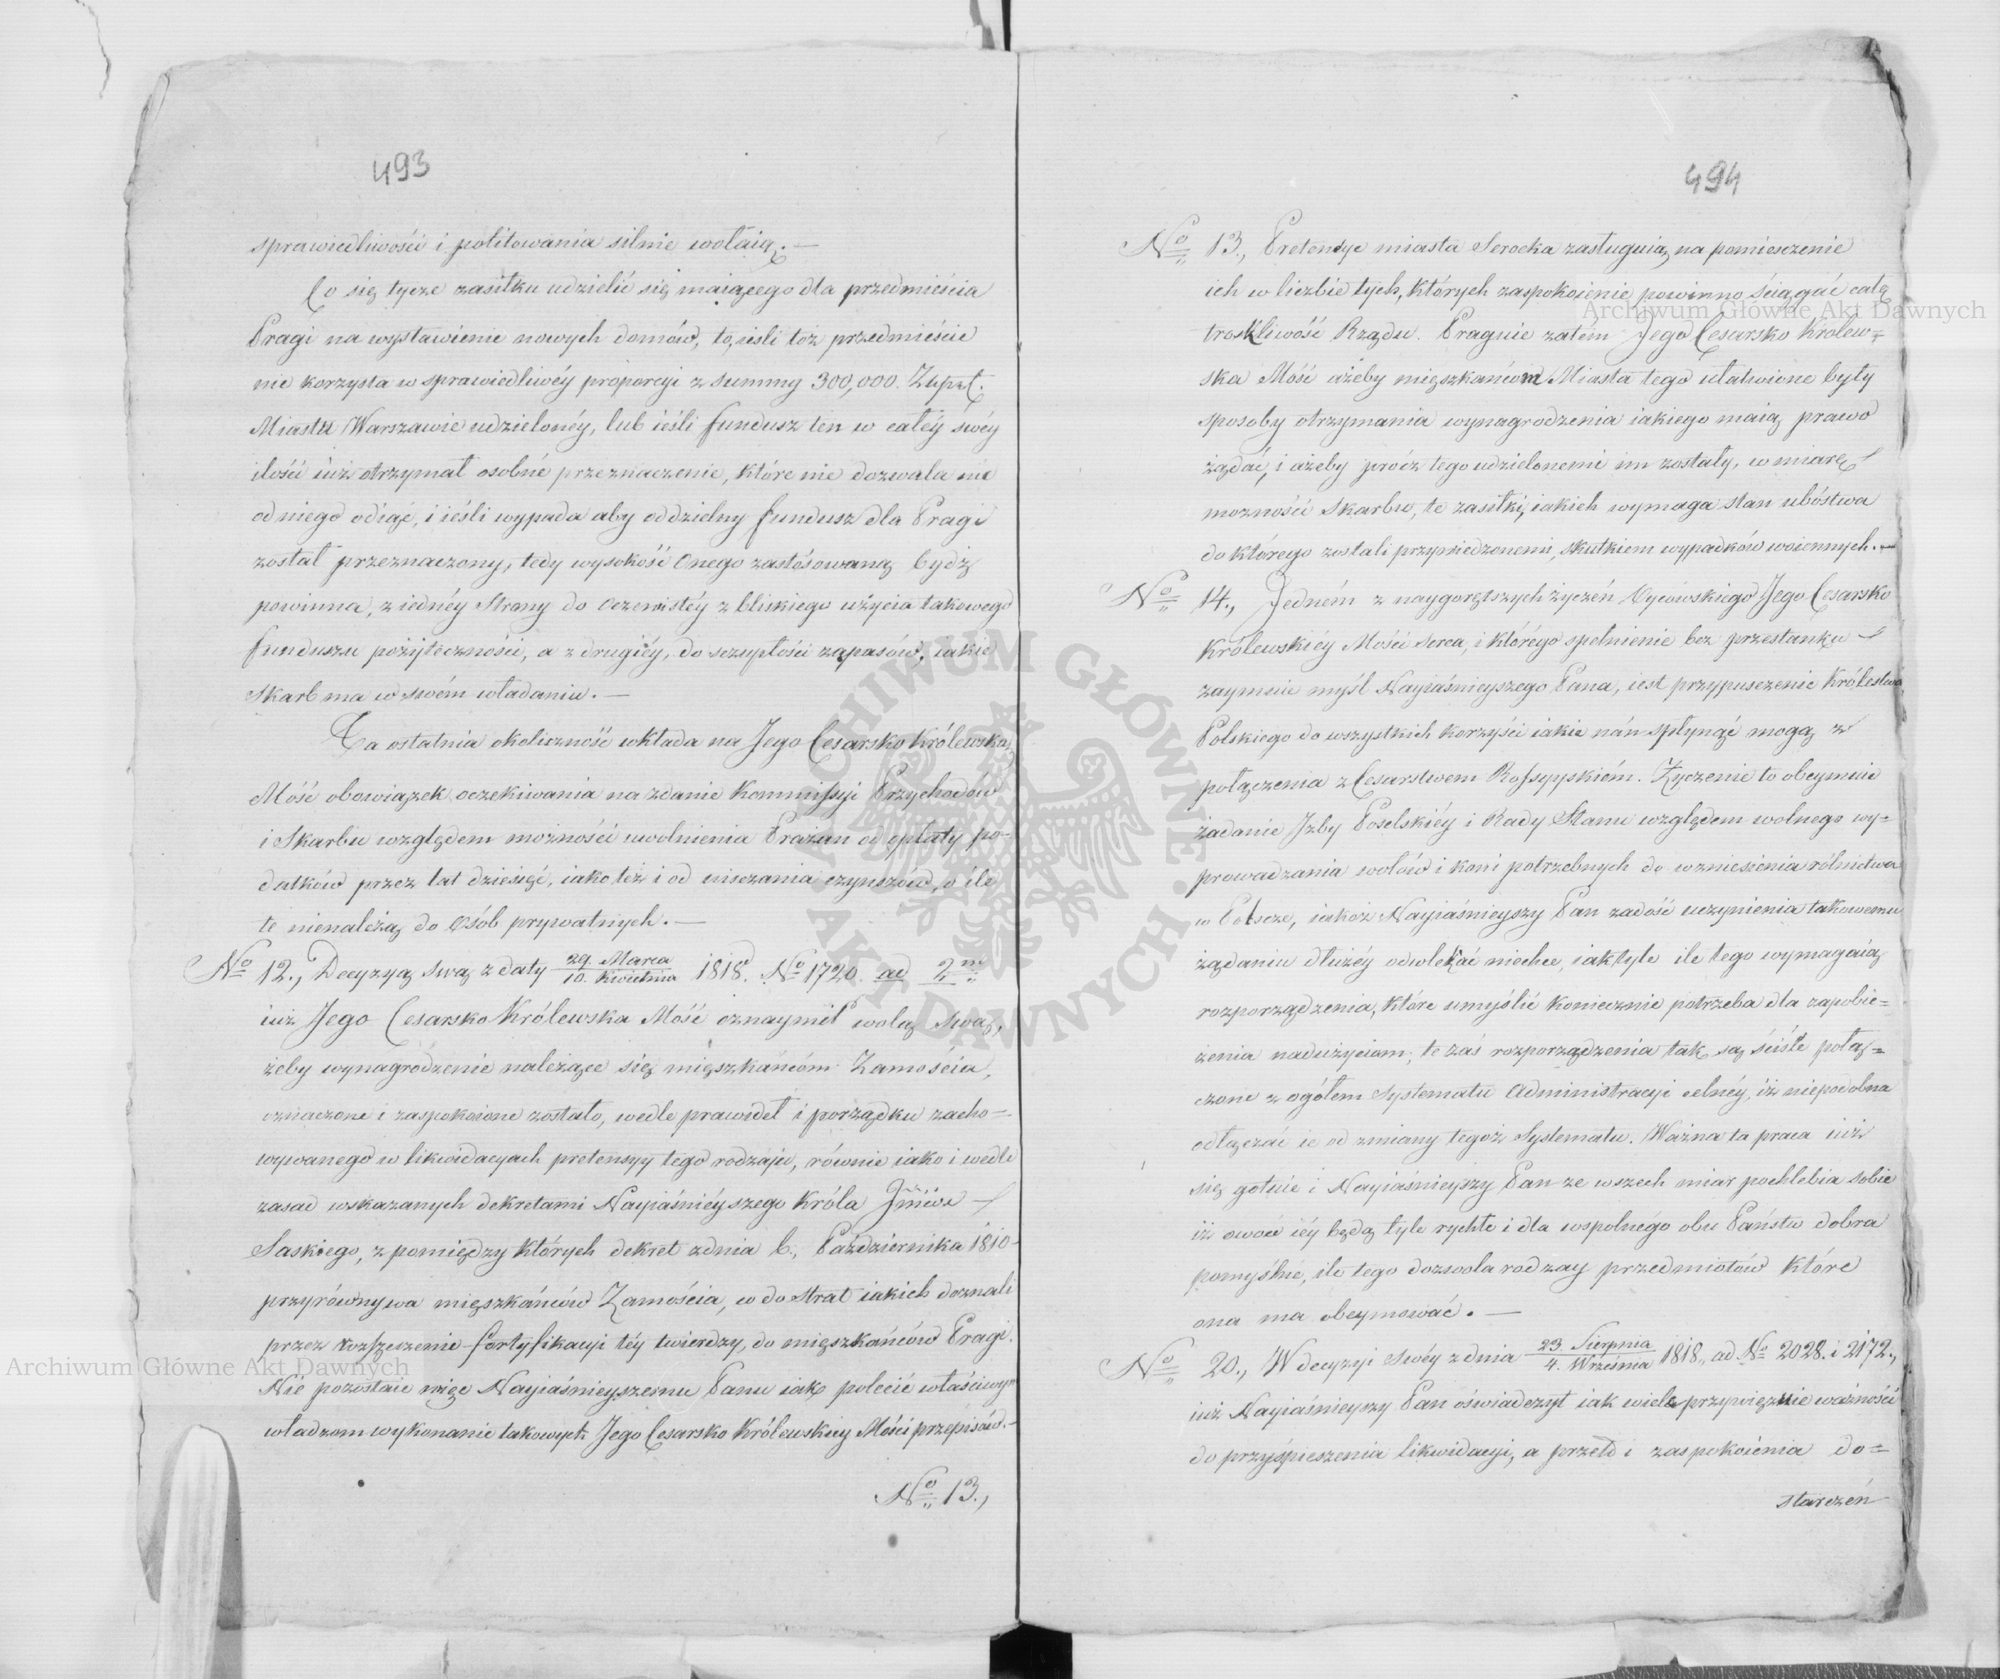 493
sprawiedliwości i politowania silnie wołaią. —
Co się tycze zasiłku udzielić się maiącego dla przedmieścia
Pragi na wystawienie nowych domów, to, ieśli toż przedmieście
nie korzysta w sprawiedliwéy proporcyi z summy 300,000. Złpol.
Miastu Warszawie udzielonéy, lub ieśli fundusz ten w całéy swéy
ilości iuż otrzymał osobné przeznaczenie, które nie dozwala nic
od niego odiąć, i ieśli wypada aby oddzielny fundusz dla Pragi
został przeznaczony, tedy wysokość onego zastósowaną bydź
powinna, z iednéy strony do oczewistéy z bliskiego użycia takowego
funduszu pożyteczności, a z drugiéy, do szczupłości zapasów, iakie
skarb ma w swém władaniu. —
Ta ostatnia okoliczność wkłada na Jego Cesarsko Królewską
Mość obowiązek oczekiwania na zdanie Kommissyi Przychodów
i Skarbu względem możności uwolnienia Prażan od opłaty po-
datków przez lat dziesięć, iako też i od uiszczania czynszów, o ile
te nienależą do Osób prywatnych. —
No 12., Decyzyą swą z daty 29. Marca / 10. Kwietnia 1818. No 1720. ad 2m
iuż Jego Cesarsko Królewska Mość oznaymił wolą swą,
żeby wynagrodzenie należące się mięszkańcóm Zamościa,
oznaczone i zaspokoione zostało, wedle prawideł i porządku zacho=
wywanego w likwidacyach pretensyy tego rodzaju, równie iako i wedle
zasad wskazanych dekretami Nayiaśniéyszego Króla Jmci
Saskiego, z pomiędzy których dekret z dnia 6., Października 1810
przyrównywa mięszkańców Zamościa, co do strat iakich doznali
przez rozszerzenie fortyfikacyi téy twierdzy, do mięszkańców Pragi.
Nie pozostaie więc Nayiaśnieyszemu Panu iak polecić właściwym
władzom wykonanie takowych Jego Cesarsko Królewskiey Mości przepisów. —
No 13.,
494
No 13., Pretensye miasta Serocka zasługuią na pomieszczenie
ich w liczbie tych, których zaspokoienie powinno ściągać całą
troskliwość Rządu. Pragnie zatém Jego Cesarsko Królew=
ska Mość ażeby mięszkańcom Miasta tego ułatwione były
sposoby otrzymania wynagrodzenia iakiego maią prawo
żądać, i ażeby prócz tego udzielonemi im zostały, w miarę
możności Skarbu, te zasiłki, iakich wymaga stan ubóstwa
do którego zostali przywiedzonemi, skutkiem wypadków woiennych. —
No 14., Jedném z naygorętszych życzeń Oycowskiego Jego Cesarsko
Królewskiéy Mości serca, i którégo spełnienie bez przestanku
zaymuie myśl Nayiaśnieyszego Pana, iest przypuszczenie Królestwa
Polskiego do wszystkich korzyści iakie nań spłynąć mogą z
połączenia z Cesarstwem Rossyyskiém. Życzenie to obeymuie
żądanie Jzby Poselskiéy i Rady Stanu względem wolnego wy=
prowadzania wołów i koni potrzebnych do wzniesienia rólnictwa
w Polszcze, iakoż Nayiaśnieyszy Pan zadość uczynienia takowemu
żądaniu dłużéy odwlekać niechce, iak tyle ile tego wymagaią
rozporządzenia, które umyślić koniecznie potrzeba dla zapobie=
żenia nadużyciom; te zaś rozporządzenia tak są ściśle połą=
czone z ogółem Systematu Administracyi celnéy, iż niepodobna
odłączać ie od zmiany tegoż Systematu. Ważna ta praca iuż
się gotuie i Nayiaśnieyszy Pan ze wszech miar pochlebia sobie
iż owoce iéy będą tyle rychłe i dla wspolnégo obu Państw dobra
pomyślne, ile tego dozwola rodzay przedmiotów które
ona ma obeymować. —
No 20., W decyzyi swéy z dnia 23. Sierpnia / 4. Września 1818., ad No 2028. i 2172.,
iuż Nayiaśnieyszy Pan oświadczył iak wiele przywięzuie ważności
do przyśpieszenia likwidacyi, a przeto i zaspokoienia do=
starczeń
Archiwum Główne Akt Dawnych
Archiwum Główne Akt Dawnych
ARCHIWUM GŁÓWNE AKT DAWNYCH